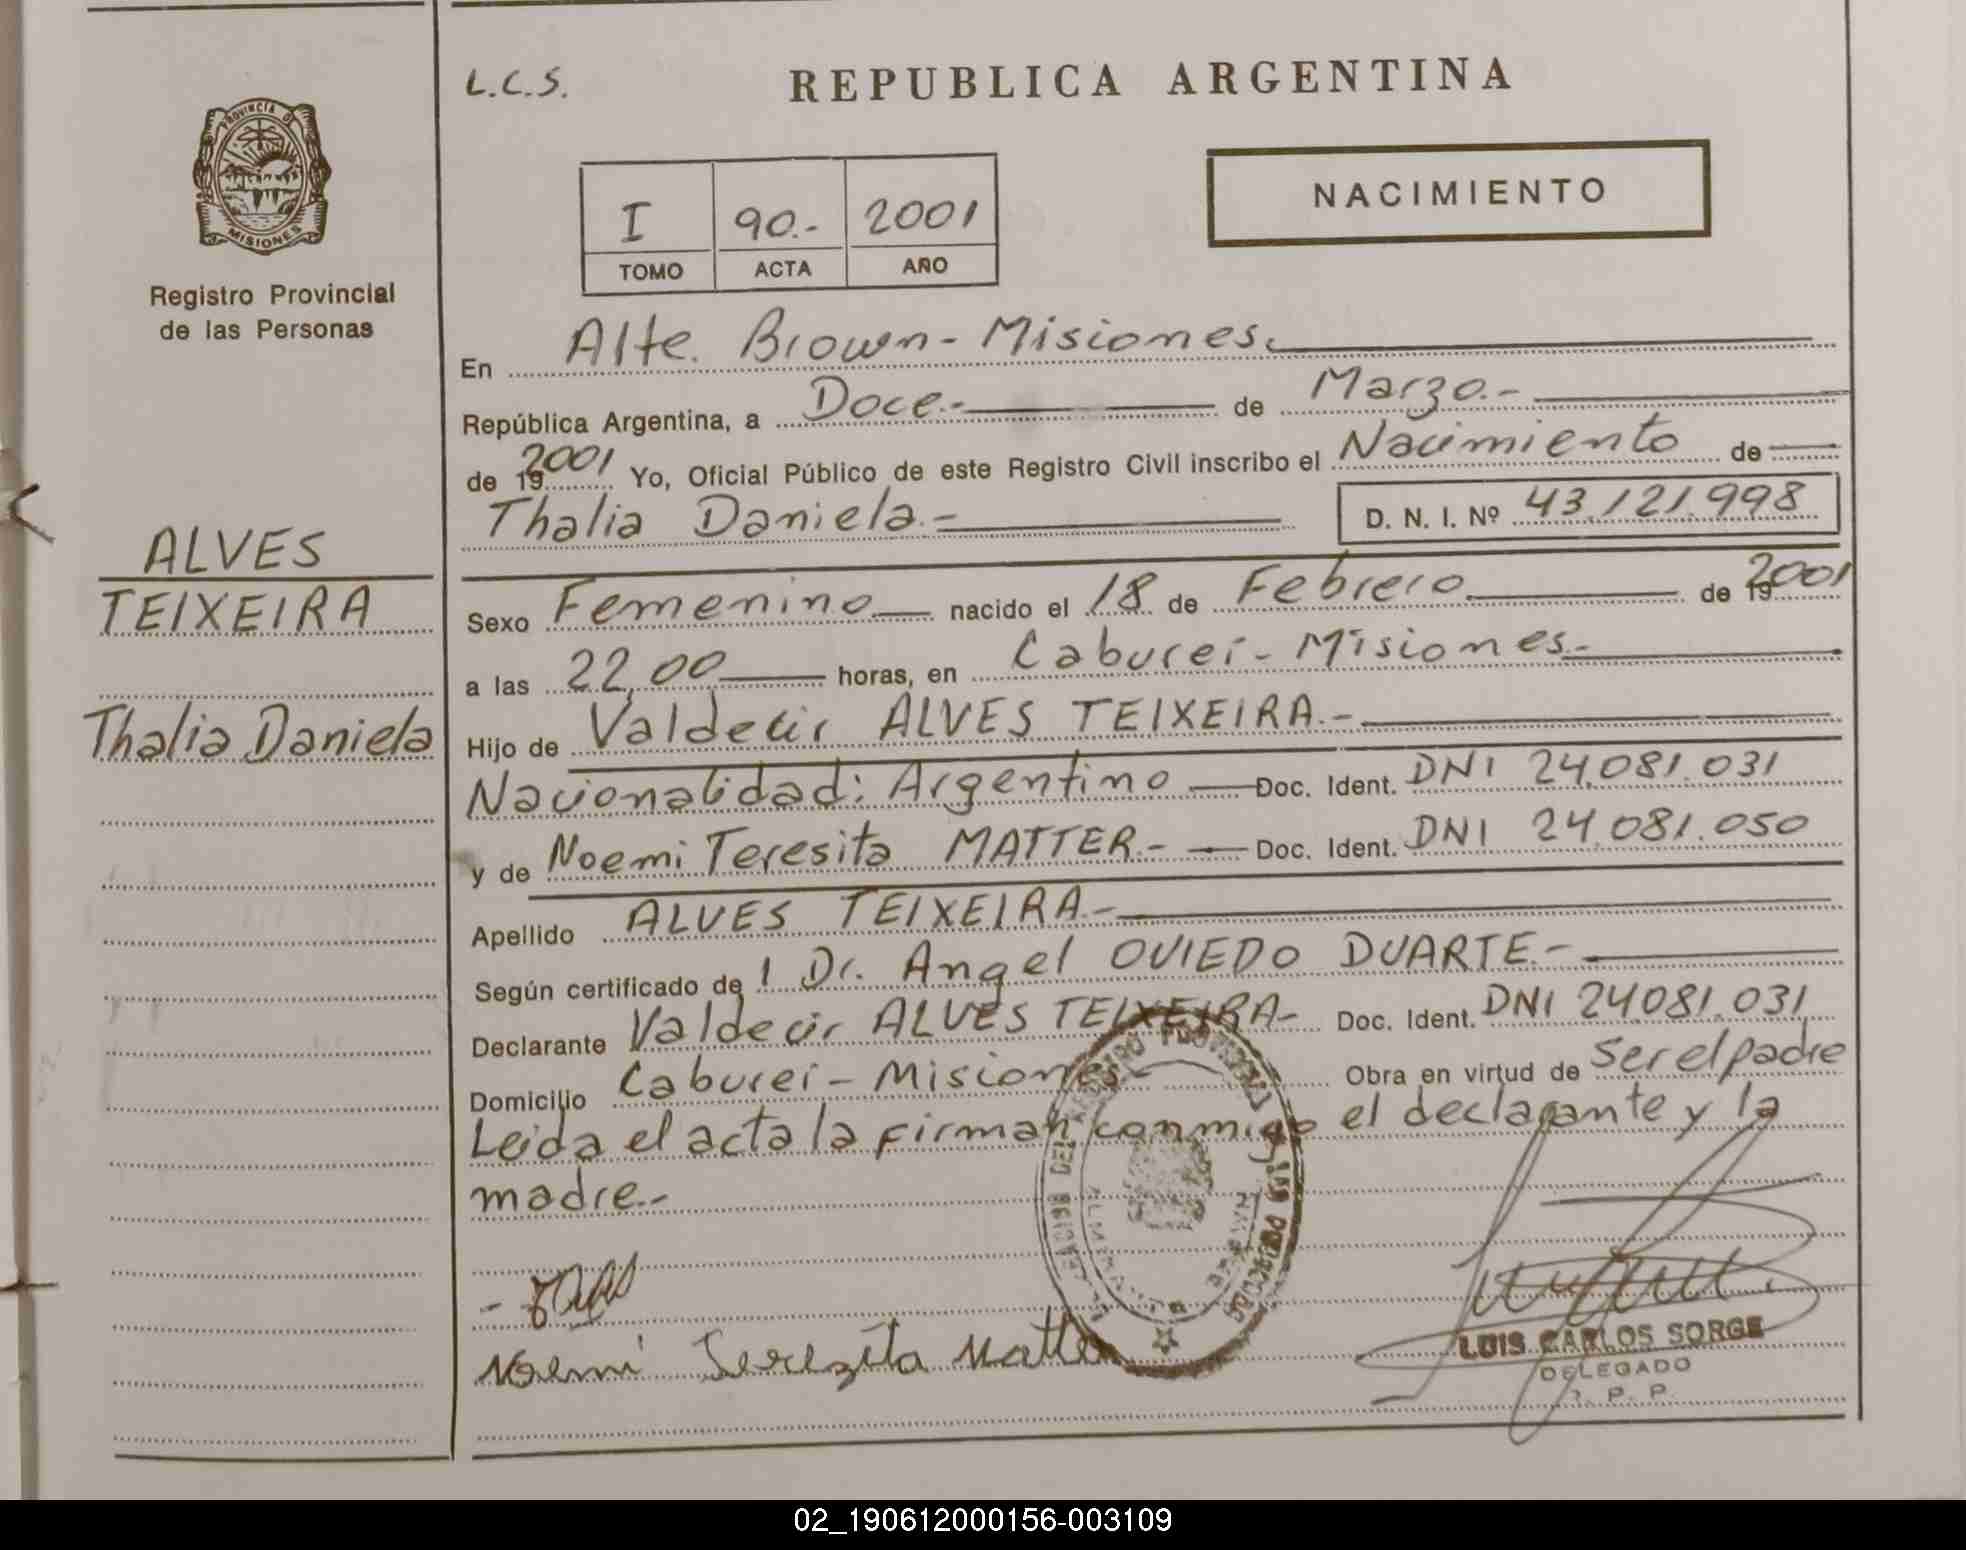 PROVINCIA DE
MISIONES
Registro Provincial
de las Personas
ALVES
TEIXEIRA
Thalia Daniela
L.C.S.
REPUBLICA ARGENTINA
I 90.- 2001
TOMO ACTA AÑO
NACIMIENTO
En Alte. Brown - Misiones.
República Argentina, a Doce.- de Marzo.-
de 19 2001 Yo, Oficial Público de este Registro Civil inscribo el Nacimiento de
Thalia Daniela.- D. N. I. Nº 43.121.998
Sexo Femenino nacido el 18 de Febrero de 19 2001
a las 22,00 horas, en Caburei - Misiones.-
Hijo de Valdecir ALVES TEIXEIRA.-
Nacionalidad: Argentino Doc. Ident. DNI 24.081.031
y de Noemi Teresita MATTER.- Doc. Ident. DNI 24.081.050
Apellido ALVES TEIXEIRA.-
Según certificado de 1 Dr. Angel OVIEDO DUARTE.-
Declarante Valdecir ALVES TEIXEIRA- Doc. Ident. DNI 24.081.031
Domicilio Caburei - Misiones Obra en virtud de ser el padre
Leida el acta la firman conmigo el declarante y la
madre.-
Noemi Terezita Matter
LUIS CARLOS SORGE
DELEGADO
R. P. P.
02_190612000156-003109